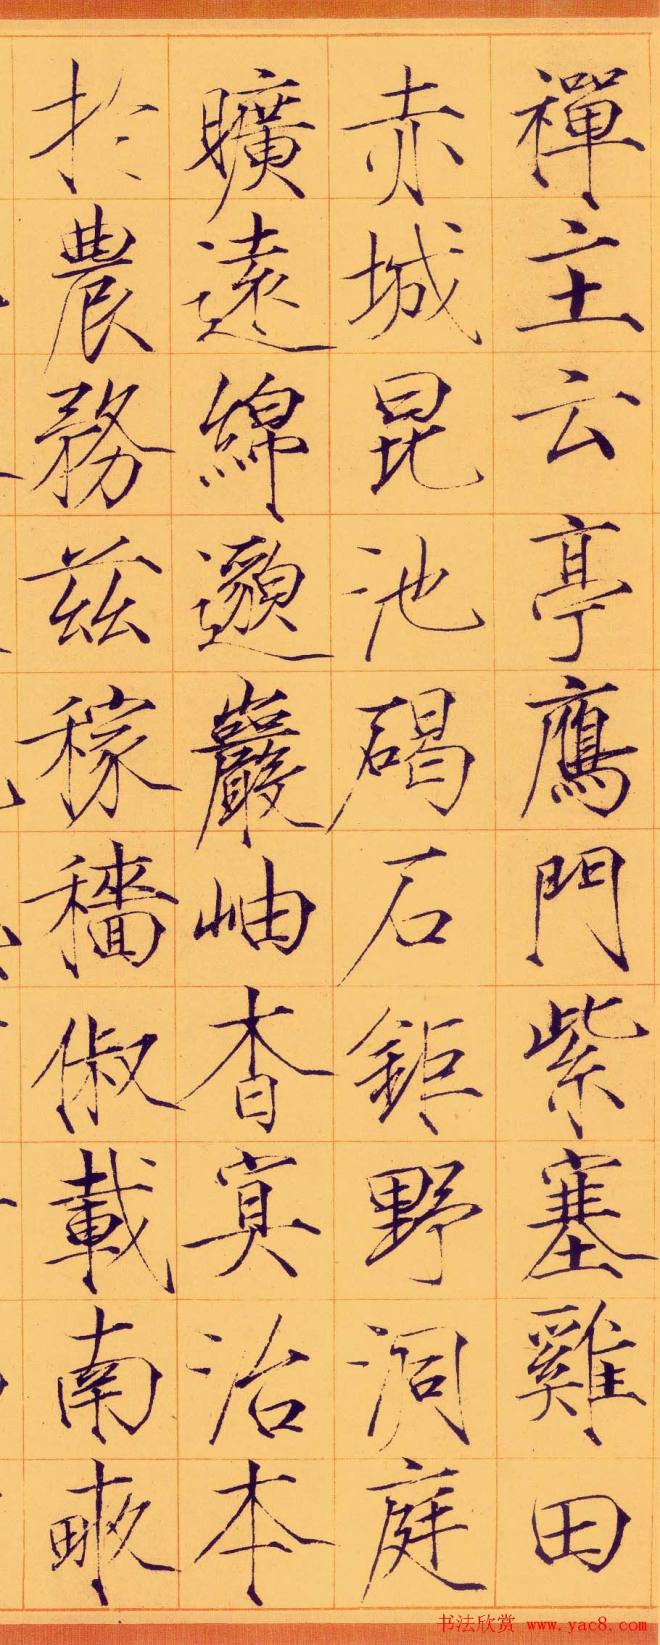 禪主云亭鴈門紫塞雞田
赤城昆池碣石鉅野洞庭
曠遠綿邈巖岫杳冥治本
於農務茲稼穡俶載南畝
书法欣赏 www.yac8.com